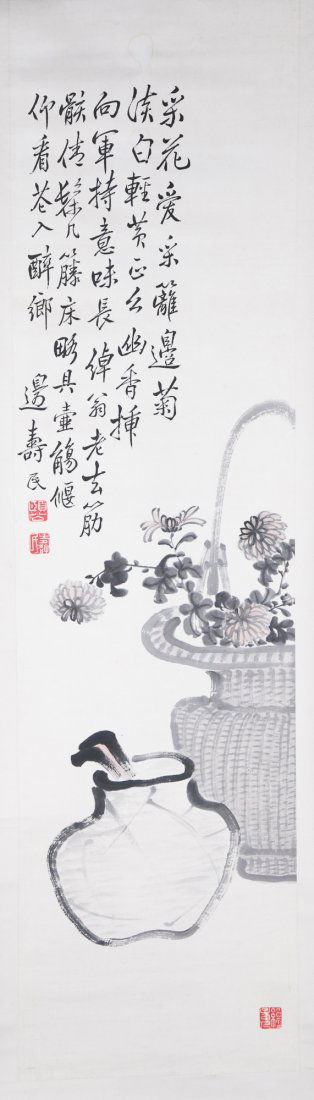 采花爱采籬邊菊
淡白輕黄正么幽香插
向軍持意味長綽翁老去筋
骸倦髹几籐床略具壺觴偃
仰看花入醉鄉
邊壽民